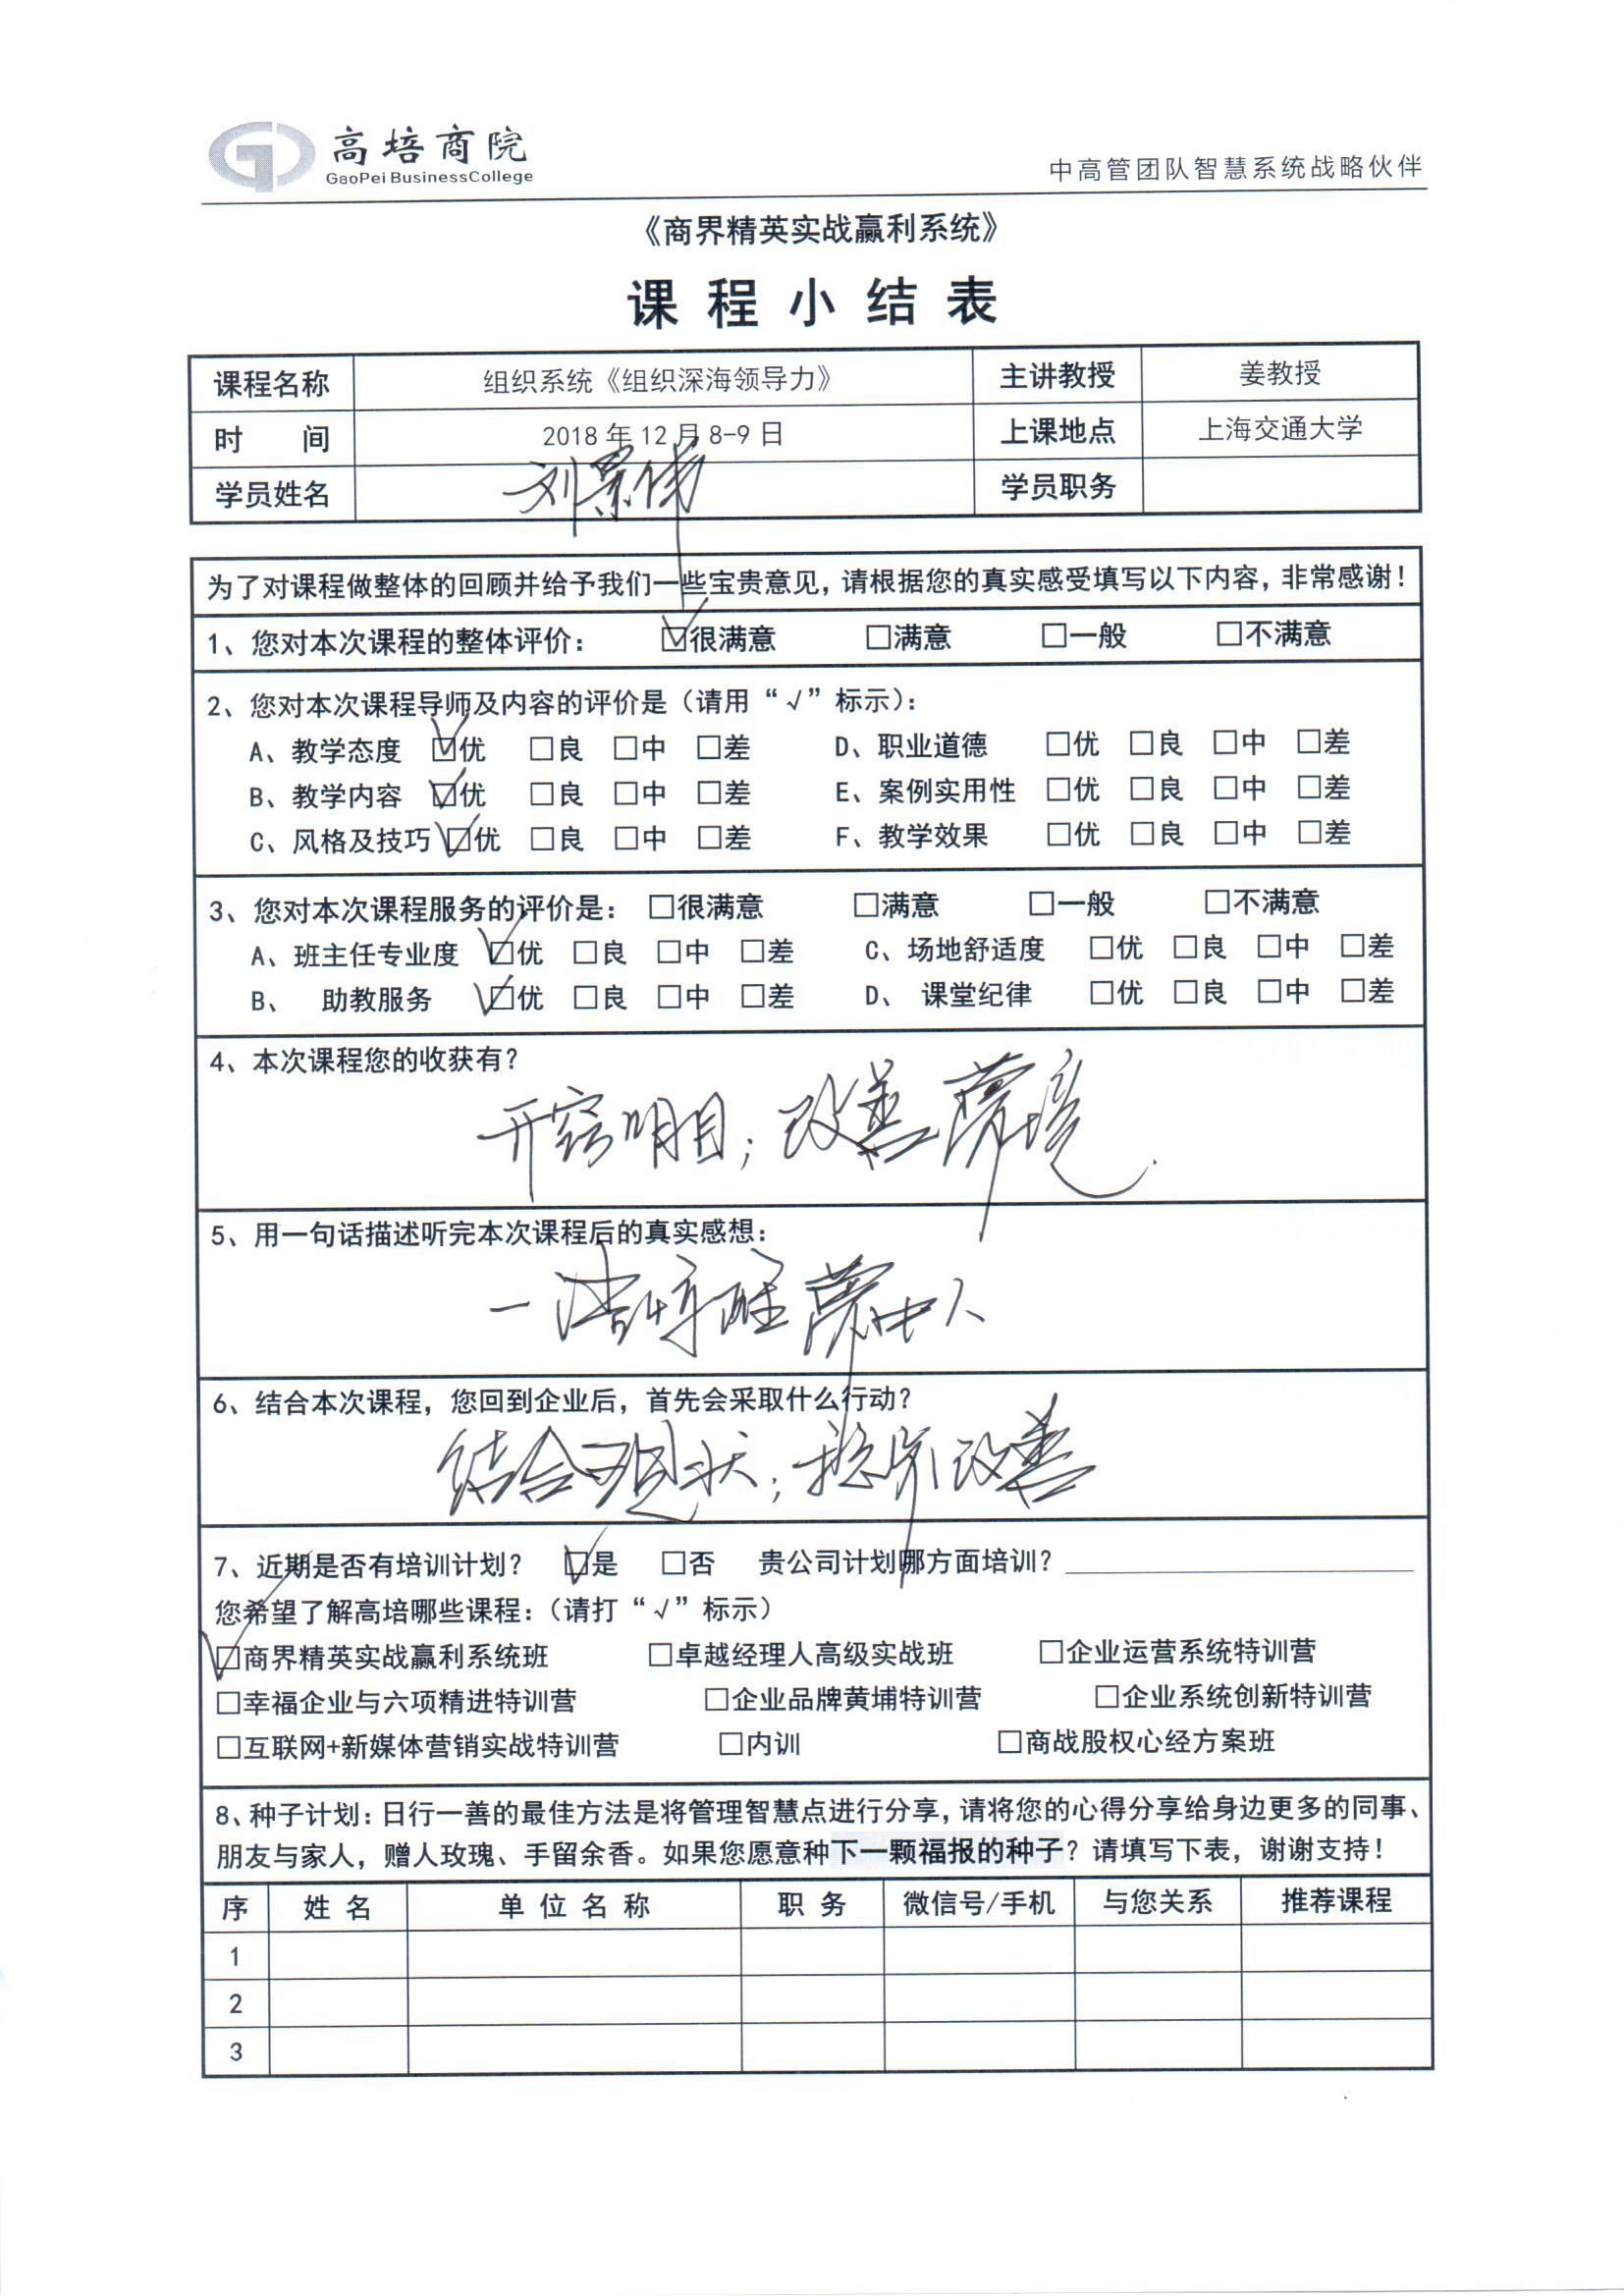 高培商院
GaoPei BusinessCollege
中高管团队智慧系统战略伙伴
《商界精英实战赢利系统》
课程小结表
课程名称 组织系统《组织深海领导力》 主讲教授 姜教授
时 间 2018年12月8-9日 上课地点 上海交通大学
学员姓名 刘景伟 学员职务
为了对课程做整体的回顾并给予我们一些宝贵意见,请根据您的真实感受填写以下内容,非常感谢!
1、您对本次课程的整体评价: ☑很满意 □满意 □一般 □不满意
2、您对本次课程导师及内容的评价是(请用“√”标示):
A、教学态度 ☑优 □良 □中 □差 D、职业道德 □优 □良 □中 □差
B、教学内容 ☑优 □良 □中 □差 E、案例实用性 □优 □良 □中 □差
C、风格及技巧 ☑优 □良 □中 □差 F、教学效果 □优 □良 □中 □差
3、您对本次课程服务的评价是: □很满意 □满意 □一般 □不满意
A、班主任专业度 ☑优 □良 □中 □差 C、场地舒适度 □优 □良 □中 □差
B、 助教服务 ☑优 □良 □中 □差 D、 课堂纪律 □优 □良 □中 □差
4、本次课程您的收获有?
开窍明目;改善
5、用一句话描述听完本次课程后的真实感想:
一语惊醒梦中人
6、结合本次课程,您回到企业后,首先会采取什么行动?
结合现状;稳步改善
7、近期是否有培训计划? ☑是 □否 贵公司计划哪方面培训?
您希望了解高培哪些课程:(请打“√”标示)
☑商界精英实战赢利系统班 □卓越经理人高级实战班 □企业运营系统特训营
□幸福企业与六项精进特训营 □企业品牌黄埔特训营 □企业系统创新特训营
□互联网+新媒体营销实战特训营 □内训 □商战股权心经方案班
8、种子计划:日行一善的最佳方法是将管理智慧点进行分享,请将您的心得分享给身边更多的同事、
朋友与家人,赠人玫瑰、手留余香。如果您愿意种下一颗福报的种子?请填写下表,谢谢支持!
序 姓 名 单 位 名 称 职 务 微信号/手机 与您关系 推荐课程
1
2
3